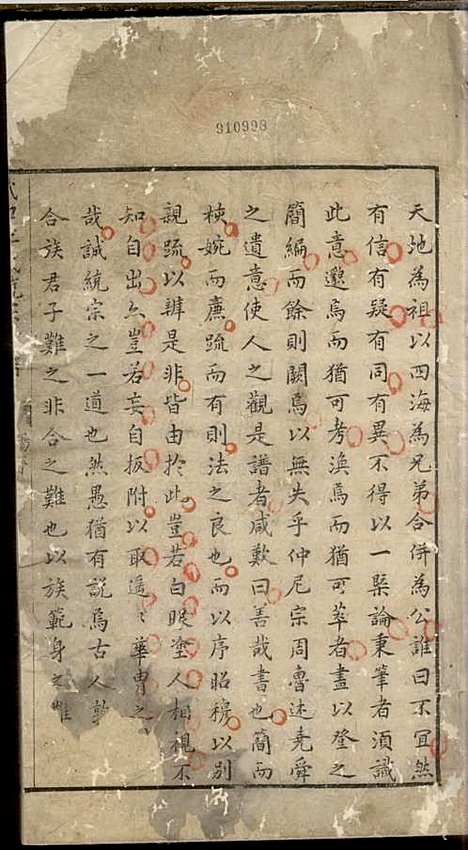 910998
天地為祖以四海為兄弟合併為公誰曰不宜然
有信有疑有同有異不得以一槩論秉筆者須識
此意邈焉而猶可考渙焉而猶可萃者盡以登之
簡編而餘則闕焉以無失乎仲尼宗周魯述堯舜
之遺意使人之觀是譜者咸歎曰善哉書也簡而
核婉而廉疏而有則法之良也而以序昭穆以別
親疏以辨是非皆由於此豈若白眼塗人相視不
知自出亦豈若妄自扳附以取遥遥華胄之
哉誠統宗之一道也然愚猶有説焉古人敦
合族君子難之非合之難也以族範身之難